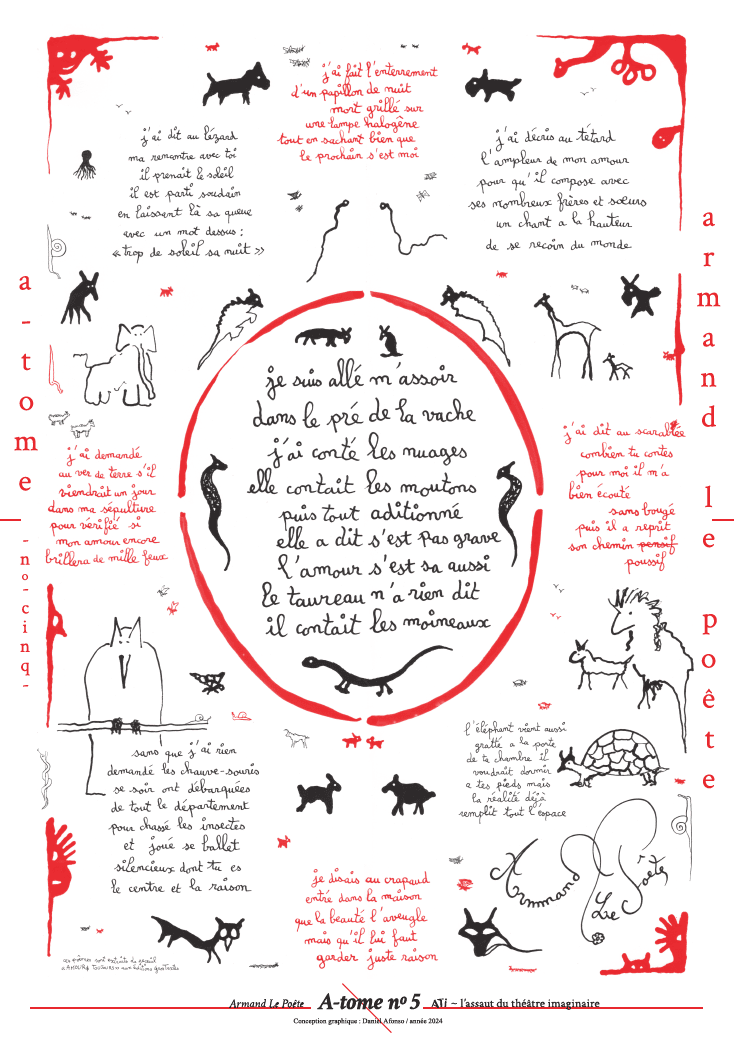 j'ai fait l'enterrement
d'un papillon de nuit
mort grillé sur
une lampe halogène
tout en sachant bien que
le prochain s'est moi
j'ai dit au lézard
ma rencontre avec toi
il prenait le soleil
il est parti soudain
en laissant là sa queue
avec un mot dessus :
« trop de soleil sa nuit »
j'ai décris au tétard
l'ampleur de mon amour
pour qu'il compose avec
ses nombreux frères et sœurs
un chant a la hauteur
de se recoin du monde
a-tome
-nº-cinq-
armand le poête
je suis allé m'assoir
dans le pré de la vache
j'ai conté les nuages
elle contait les moutons
puis tout aditionné
elle a dit s'est pas grave
l'amour s'est sa aussi
le taureau n'a rien dit
il contait les moineaux
j'ai demandé
au ver de terre s'il
viendrait un jour
dans ma sépulture
pour vérifié si
mon amour encore
brillera de mille feux
j'ai dit au scarabée
combien tu contes
pour moi il m'a
bien écouté
sans bougé
puis il a reprit
son chemin pensif
poussif
sans que j'ai rien
demandé les chauve-souris
se soir ont débarquées
de tout le département
pour chassé les insectes
et joué se ballet
silencieux dont tu es
le centre et la raison
l'éléphant vient aussi
gratté a la porte
de ta chambre il
voudrait dormir
a tes pieds mais
la réalité déjà
remplit tout l'espace
je disais au crapaud
entré dans la maison
que la beauté l'aveugle
mais qu'il lui faut
garder juste raison
Armand Le Poête
ces poèmes sont extraits du recueil
« AMOUR TOUJOURS » aux éditions gros textes
Armand Le Poête A-tome nº 5 ATi ~ l'assaut du théâtre imaginaire
Conception graphique : Daniel Afonso / année 2024